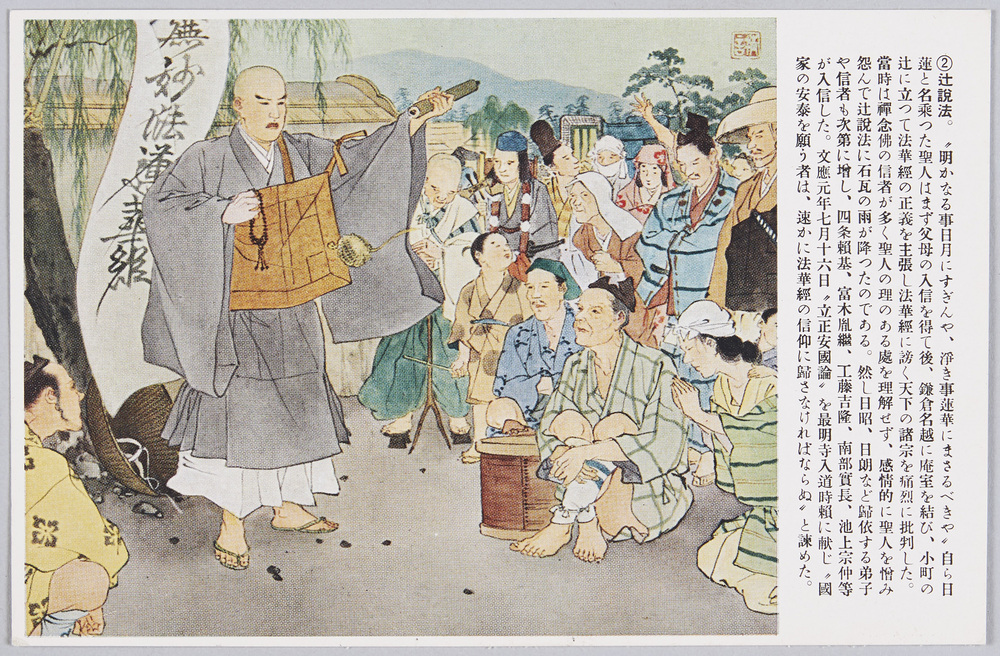 ②辻說法。〝明かなる事日月にすぎんや、淨き事蓮華にまさるべきや〟自ら日
蓮と名乗つた聖人はまず父母の入信を得て後、鎌倉名越に庵室を結び、小町の
辻に立つて法華經の正義を主張し法華經に謗く天下の諸宗を痛烈に批判した。
當時は禪念佛の信者が多く聖人の理のある處を理解せず、感情的に聖人を憎み
怨んで辻說法に石瓦の雨が降つたのである。然し日昭、日朗など歸依する弟子
や信者も次第に增し、四条賴基、富木胤繼、工藤吉隆、南部實長、池上宗仲等
が入信した。文應元年七月十六日〝立正安國論〟を最明寺入道時賴に献じ〝國
家の安泰を願う者は、速かに法華經の信仰に歸さなければならぬ〟と諫めた。
無妙法蓮華経